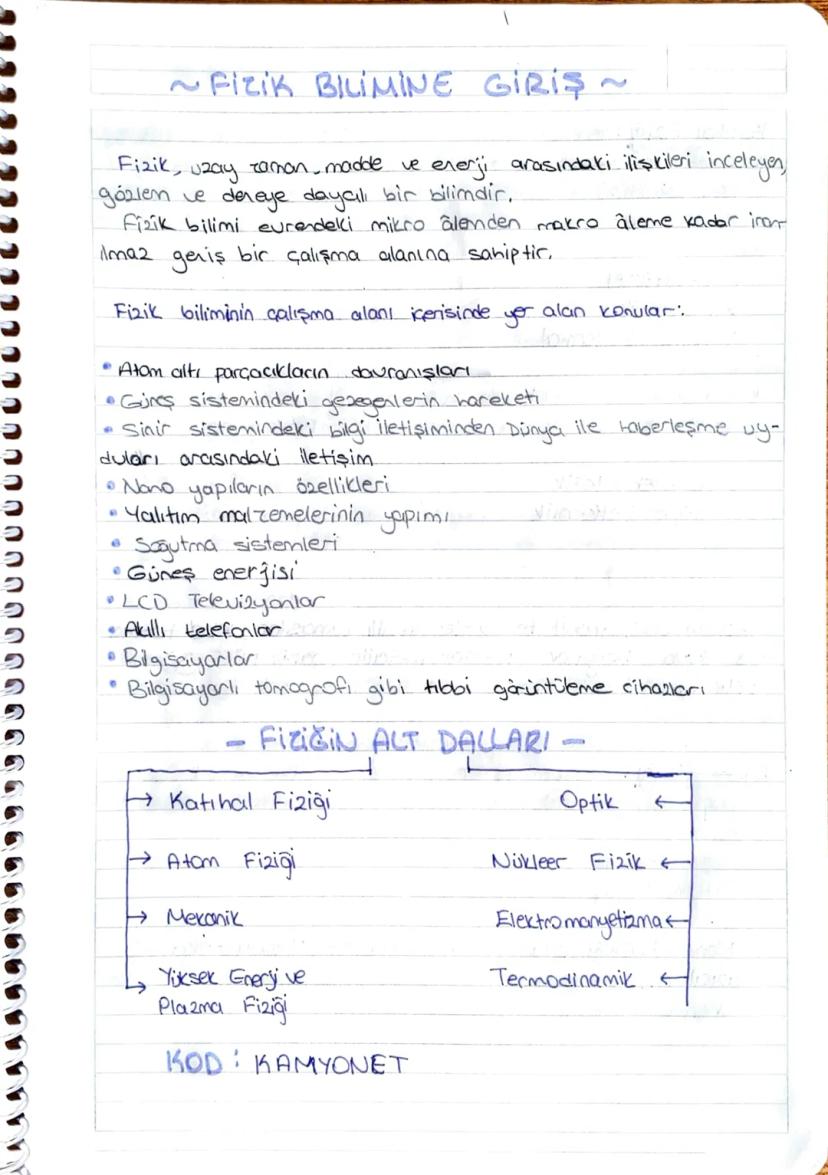 1
~ FİZİK BİLİMİNE GİRİŞ ~
Fizik, uzay zaman, madde ve enerji arasındaki ilişkileri inceleyen,
gözlem ve deneye dayalı bir bilimdir.
Fizik bilimi evrendeki mikro âlemden makro âleme kadar inan
ılmaz geniş bir çalışma alanına sahiptir.
Fizik biliminin çalışma alanı içerisinde yer alan konular:
• Atom altı parçacıkların davranışları
• Güneş sistemindeki gezegenlerin hareketi
• Sinir sistemindeki bilgi iletişiminden Dünya ile haberleşme uy-
duları arasındaki iletişim
• Nano yapıların özellikleri
• Yalıtım malzemelerinin yapımı
• Soğutma sistemleri
• Güneş enerjisi
• LCD Televizyonlar
• Akıllı telefonlar
• Bilgisayarlar
• Bilgisayarlı tomografi gibi tıbbi görüntüleme cihazları
- FİZİĞİN ALT DALLARI -
→ Katıhal Fiziği Optik ←
→ Atom Fiziği Nükleer Fizik ←
→ Mekanik Elektromanyetizma ←
→ Yüksek Enerji ve Termodinamik ←
Plazma Fiziği
KOD : KAMYONET